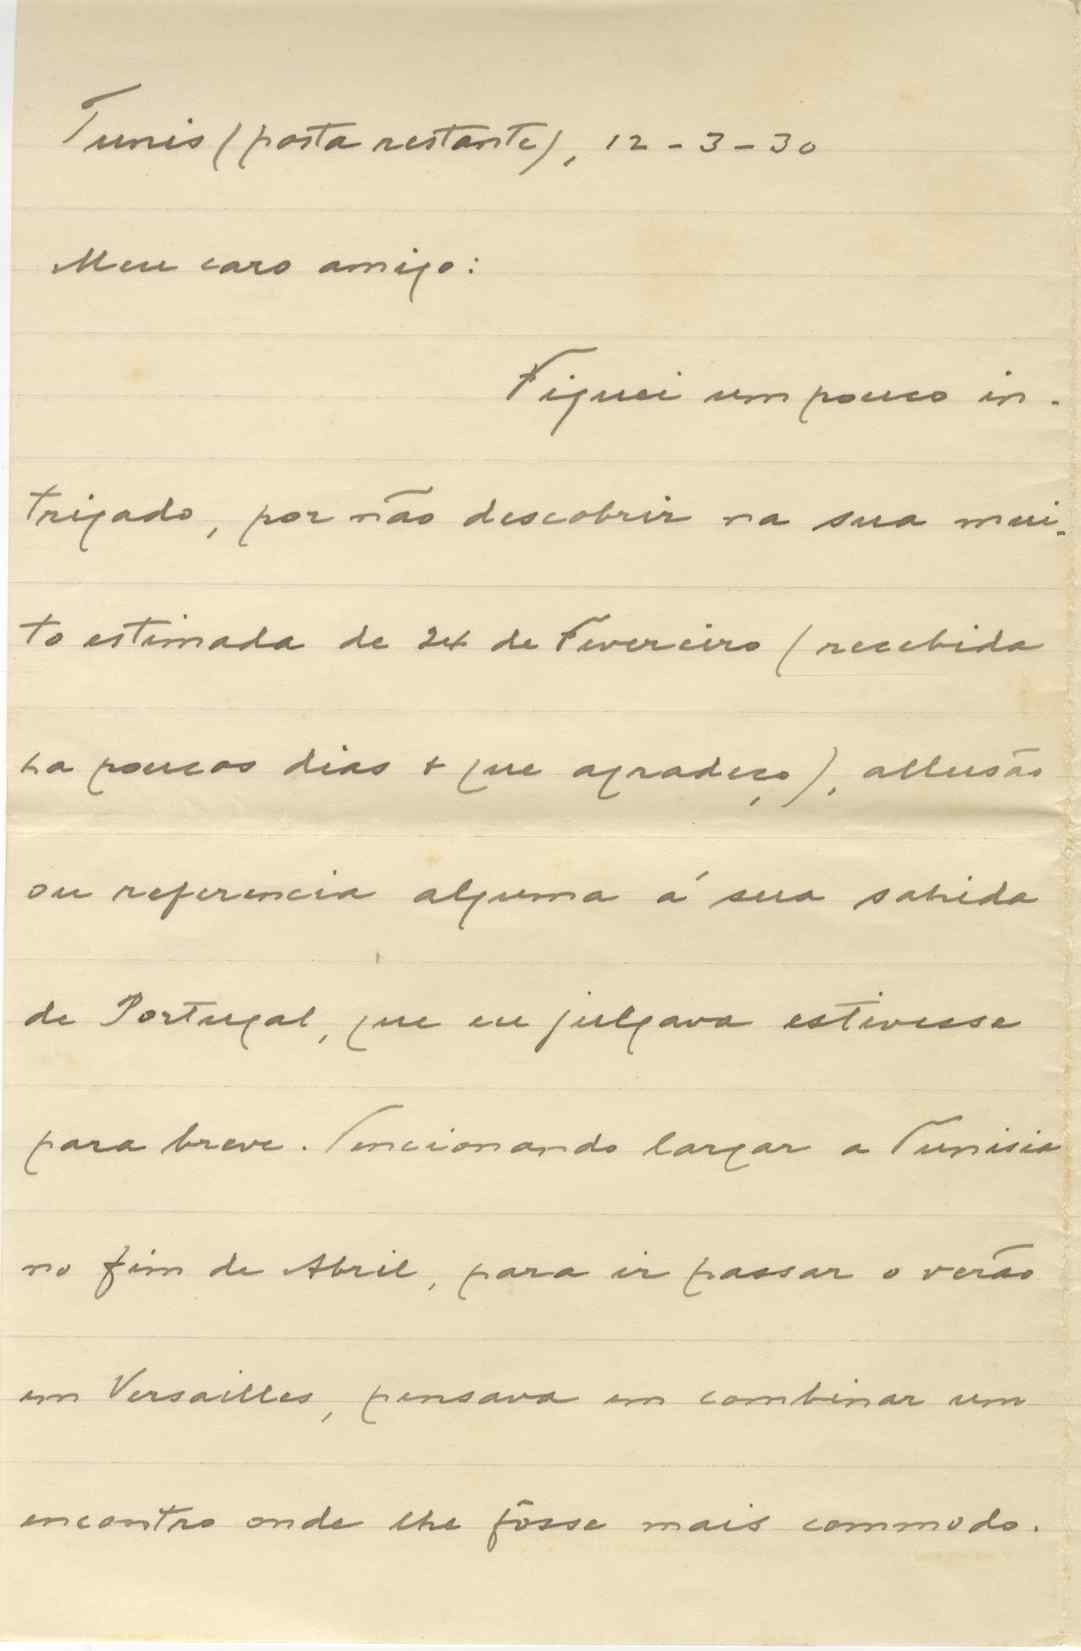 Tunis (posta restante), 12-3-30
Meu caro amigo:
Fiquei um pouco in-
trigado, por não descobrir na sua mui-
to estimada de 24 de Fevereiro (recebida
ha poucos dias & que agradeço), allusão
ou referencia alguma á sua sahida
de Portugal, que eu julgava estivesse
para breve. Tencionando largar a Tunisia
no fim de Abril, para ir passar o verão
em Versailles, pensava em combinar um
encontro onde lhe fôsse mais commodo.